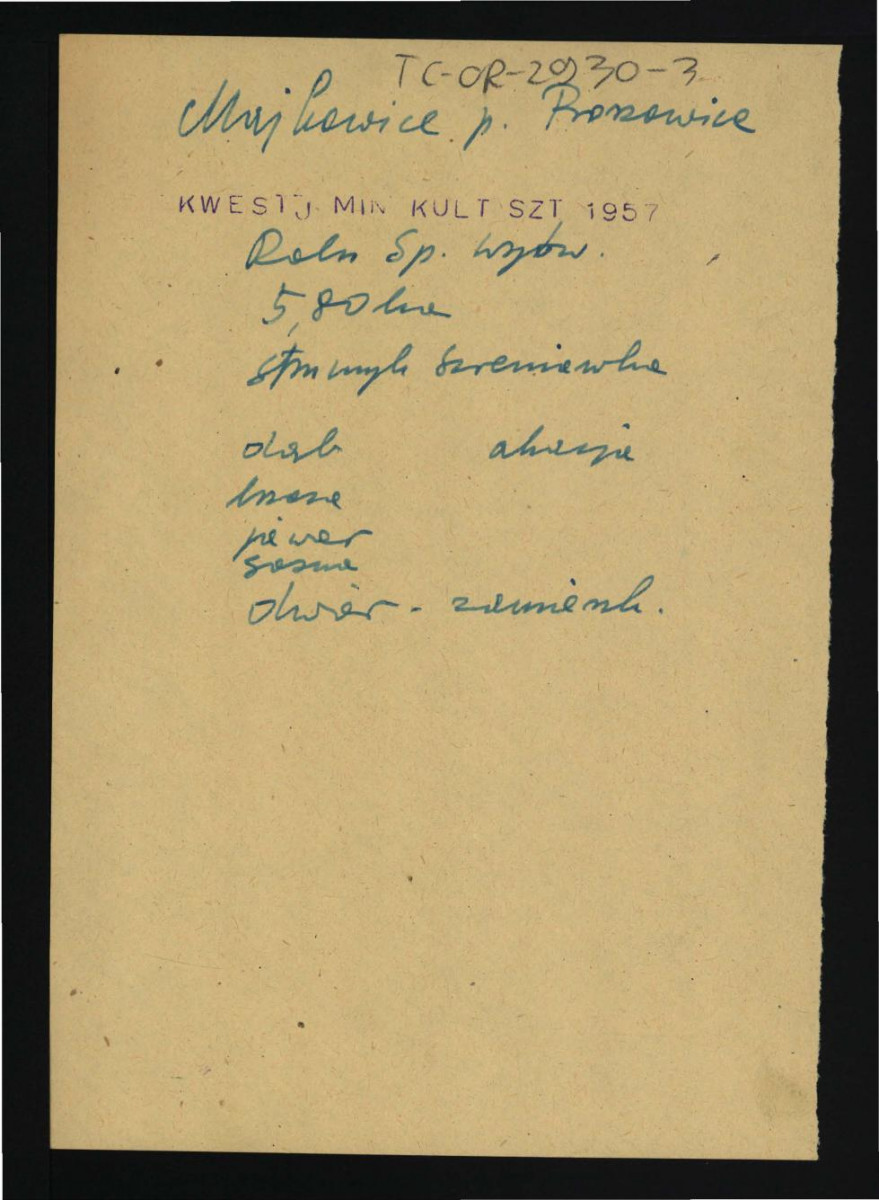 TC-OR-2930-3
Majkowice p. Proszowice
KWESTJ. MIN KULT SZT 1957
Roln Sp. wytw.
5,80 ha
strumyk Szreniawka
dąb akacja
brzoza
jawor
sosna
dwór - zamieszk.